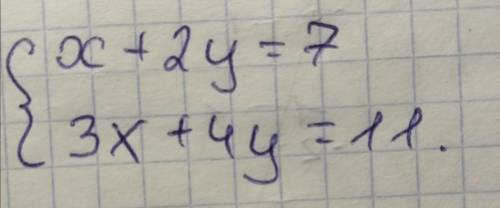 x + 2y = 7
3x + 4y = 11.